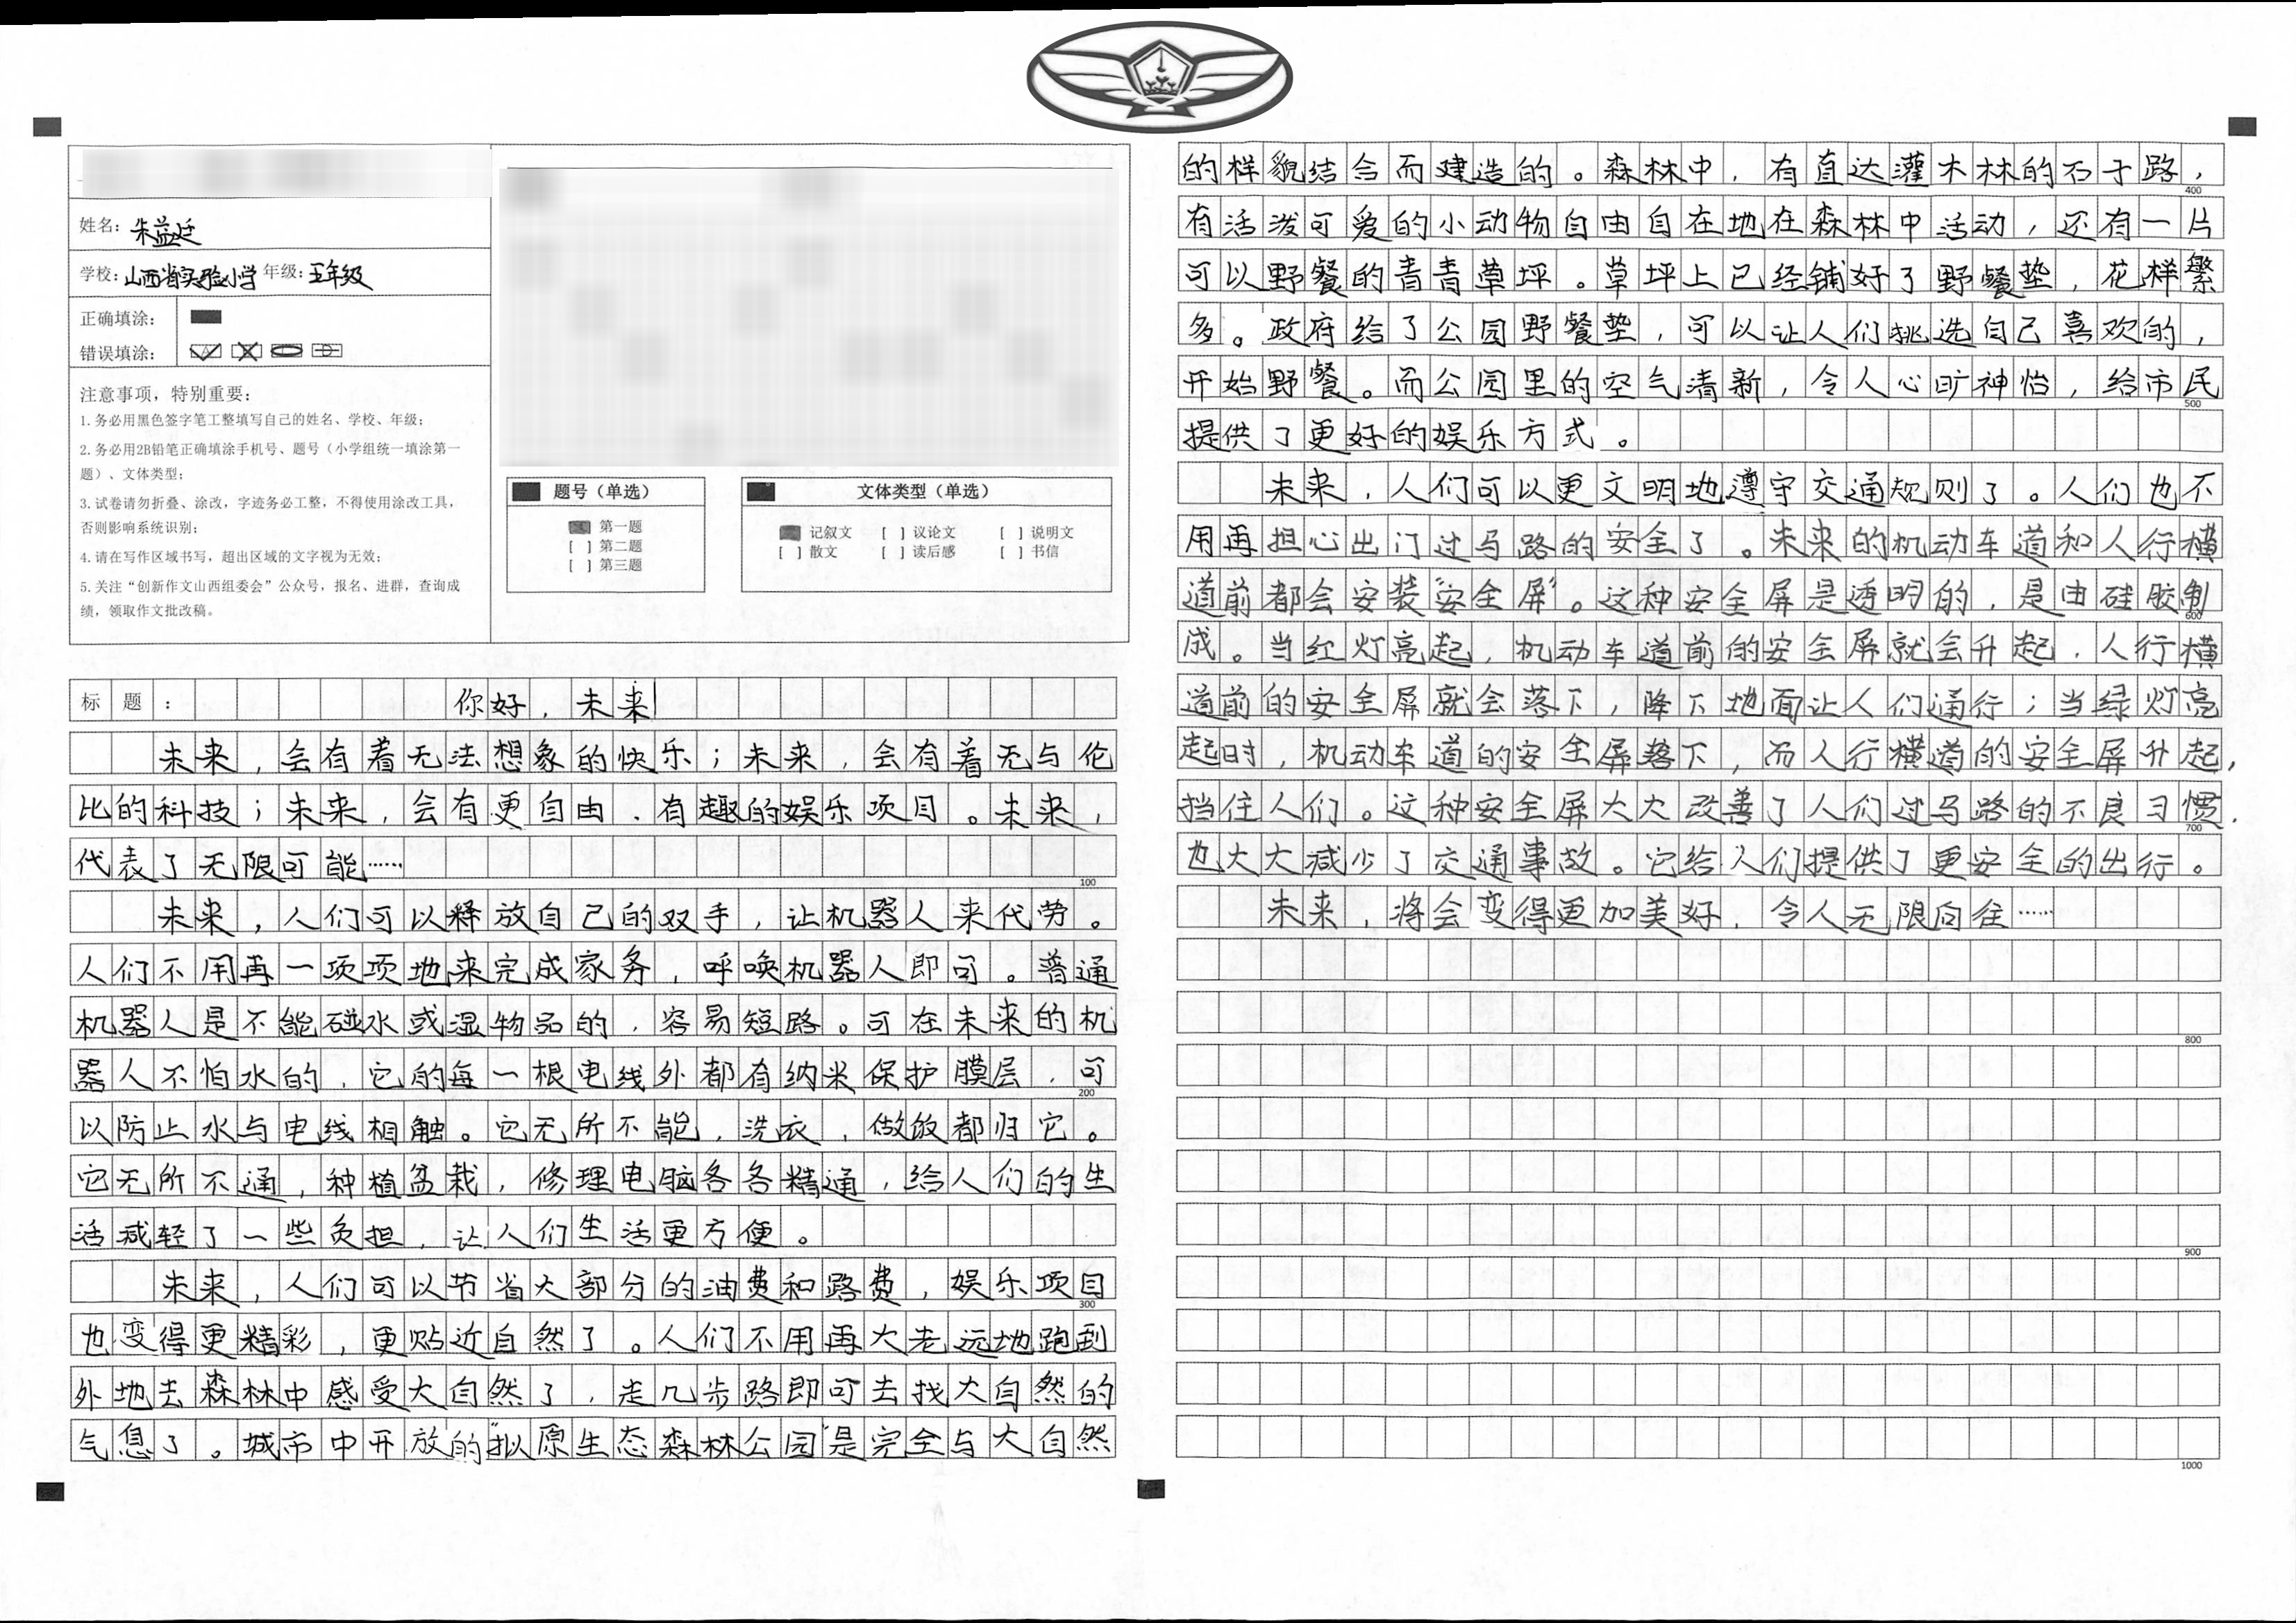 姓名：朱益廷
学校：山西省实验小学 年级：五年级
正确填涂：
错误填涂：
注意事项，特别重要：
1.务必用黑色签字笔工整填写自己的姓名、学校、年级；
2.务必用2B铅笔正确填涂手机号、题号（小学组统一填涂第一
题）、文体类型；
3.试卷请勿折叠、涂改，字迹务必工整，不得使用涂改工具，
否则影响系统识别；
4.请在写作区域书写，超出区域的文字视为无效；
5.关注“创新作文山西组委会”公众号，报名、进群，查询成
绩，领取作文批改稿。
题号（单选）
第一题
[ ] 第二题
[ ] 第三题
文体类型（单选）
记叙文 [ ] 议论文 [ ] 说明文
[ ] 散文 [ ] 读后感 [ ] 书信
标题：你好，未来
未来，会有着无法想象的快乐；未来，会有着无与伦
比的科技；未来，会有更自由、有趣的娱乐项目。未来，
代表了无限可能……
100
未来，人们可以释放自己的双手，让机器人来代劳。
人们不用再一项项地来完成家务，呼唤机器人即可。普通
机器人是不能碰水或湿物品的，容易短路。可在未来的机
器人不怕水的，它的每一根电线外都有纳米保护膜层，可
200
以防止水与电线相触。它无所不能，洗衣，做饭都归它。
它无所不通，种植盆栽，修理电脑各各精通，给人们的生
活减轻了一些负担，让人们生活更方便。
未来，人们可以节省大部分的油费和路费，娱乐项目
300
也变得更精彩，更贴近自然了。人们不用再大老远地跑到
外地去森林中感受大自然了，走几步路即可去找大自然的
气息了。城市中开放的“拟原生态森林公园”是完全与大自然
的样貌结合而建造的。森林中，有直达灌木林的石子路，
400
有活泼可爱的小动物自由自在地在森林中活动，还有一片
可以野餐的青青草坪。草坪上已经铺好了野餐垫，花样繁
多。政府给了公园野餐垫，可以让人们挑选自己喜欢的，
开始野餐。而公园里的空气清新，令人心旷神怡，给市民
500
提供了更好的娱乐方式。
未来，人们可以更文明地遵守交通规则了。人们也不
用再担心出门过马路的安全了。未来的机动车道和人行横
道前都会安装“安全屏”。这种安全屏是透明的，是由硅胶制
600
成。当红灯亮起，机动车道前的安全屏就会升起，人行横
道前的安全屏就会落下，降下地面让人们通行；当绿灯亮
起时，机动车道的安全屏落下，而人行横道的安全屏升起，
挡住人们。这种安全屏大大改善了人们过马路的不良习惯，
700
也大大减少了交通事故。它给人们提供了更安全的出行。
未来，将会变得更加美好，令人无限向往……
800
900
1000